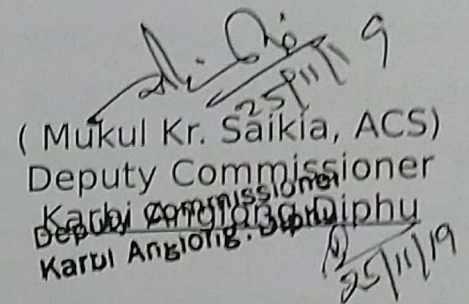 25/11/19
( Mukul Kr. Saikia, ACS)
Deputy Commissioner
Karbi Anglong, Diphu
Deputy Commissioner
Karbi Anglong, Diphu
25/11/19